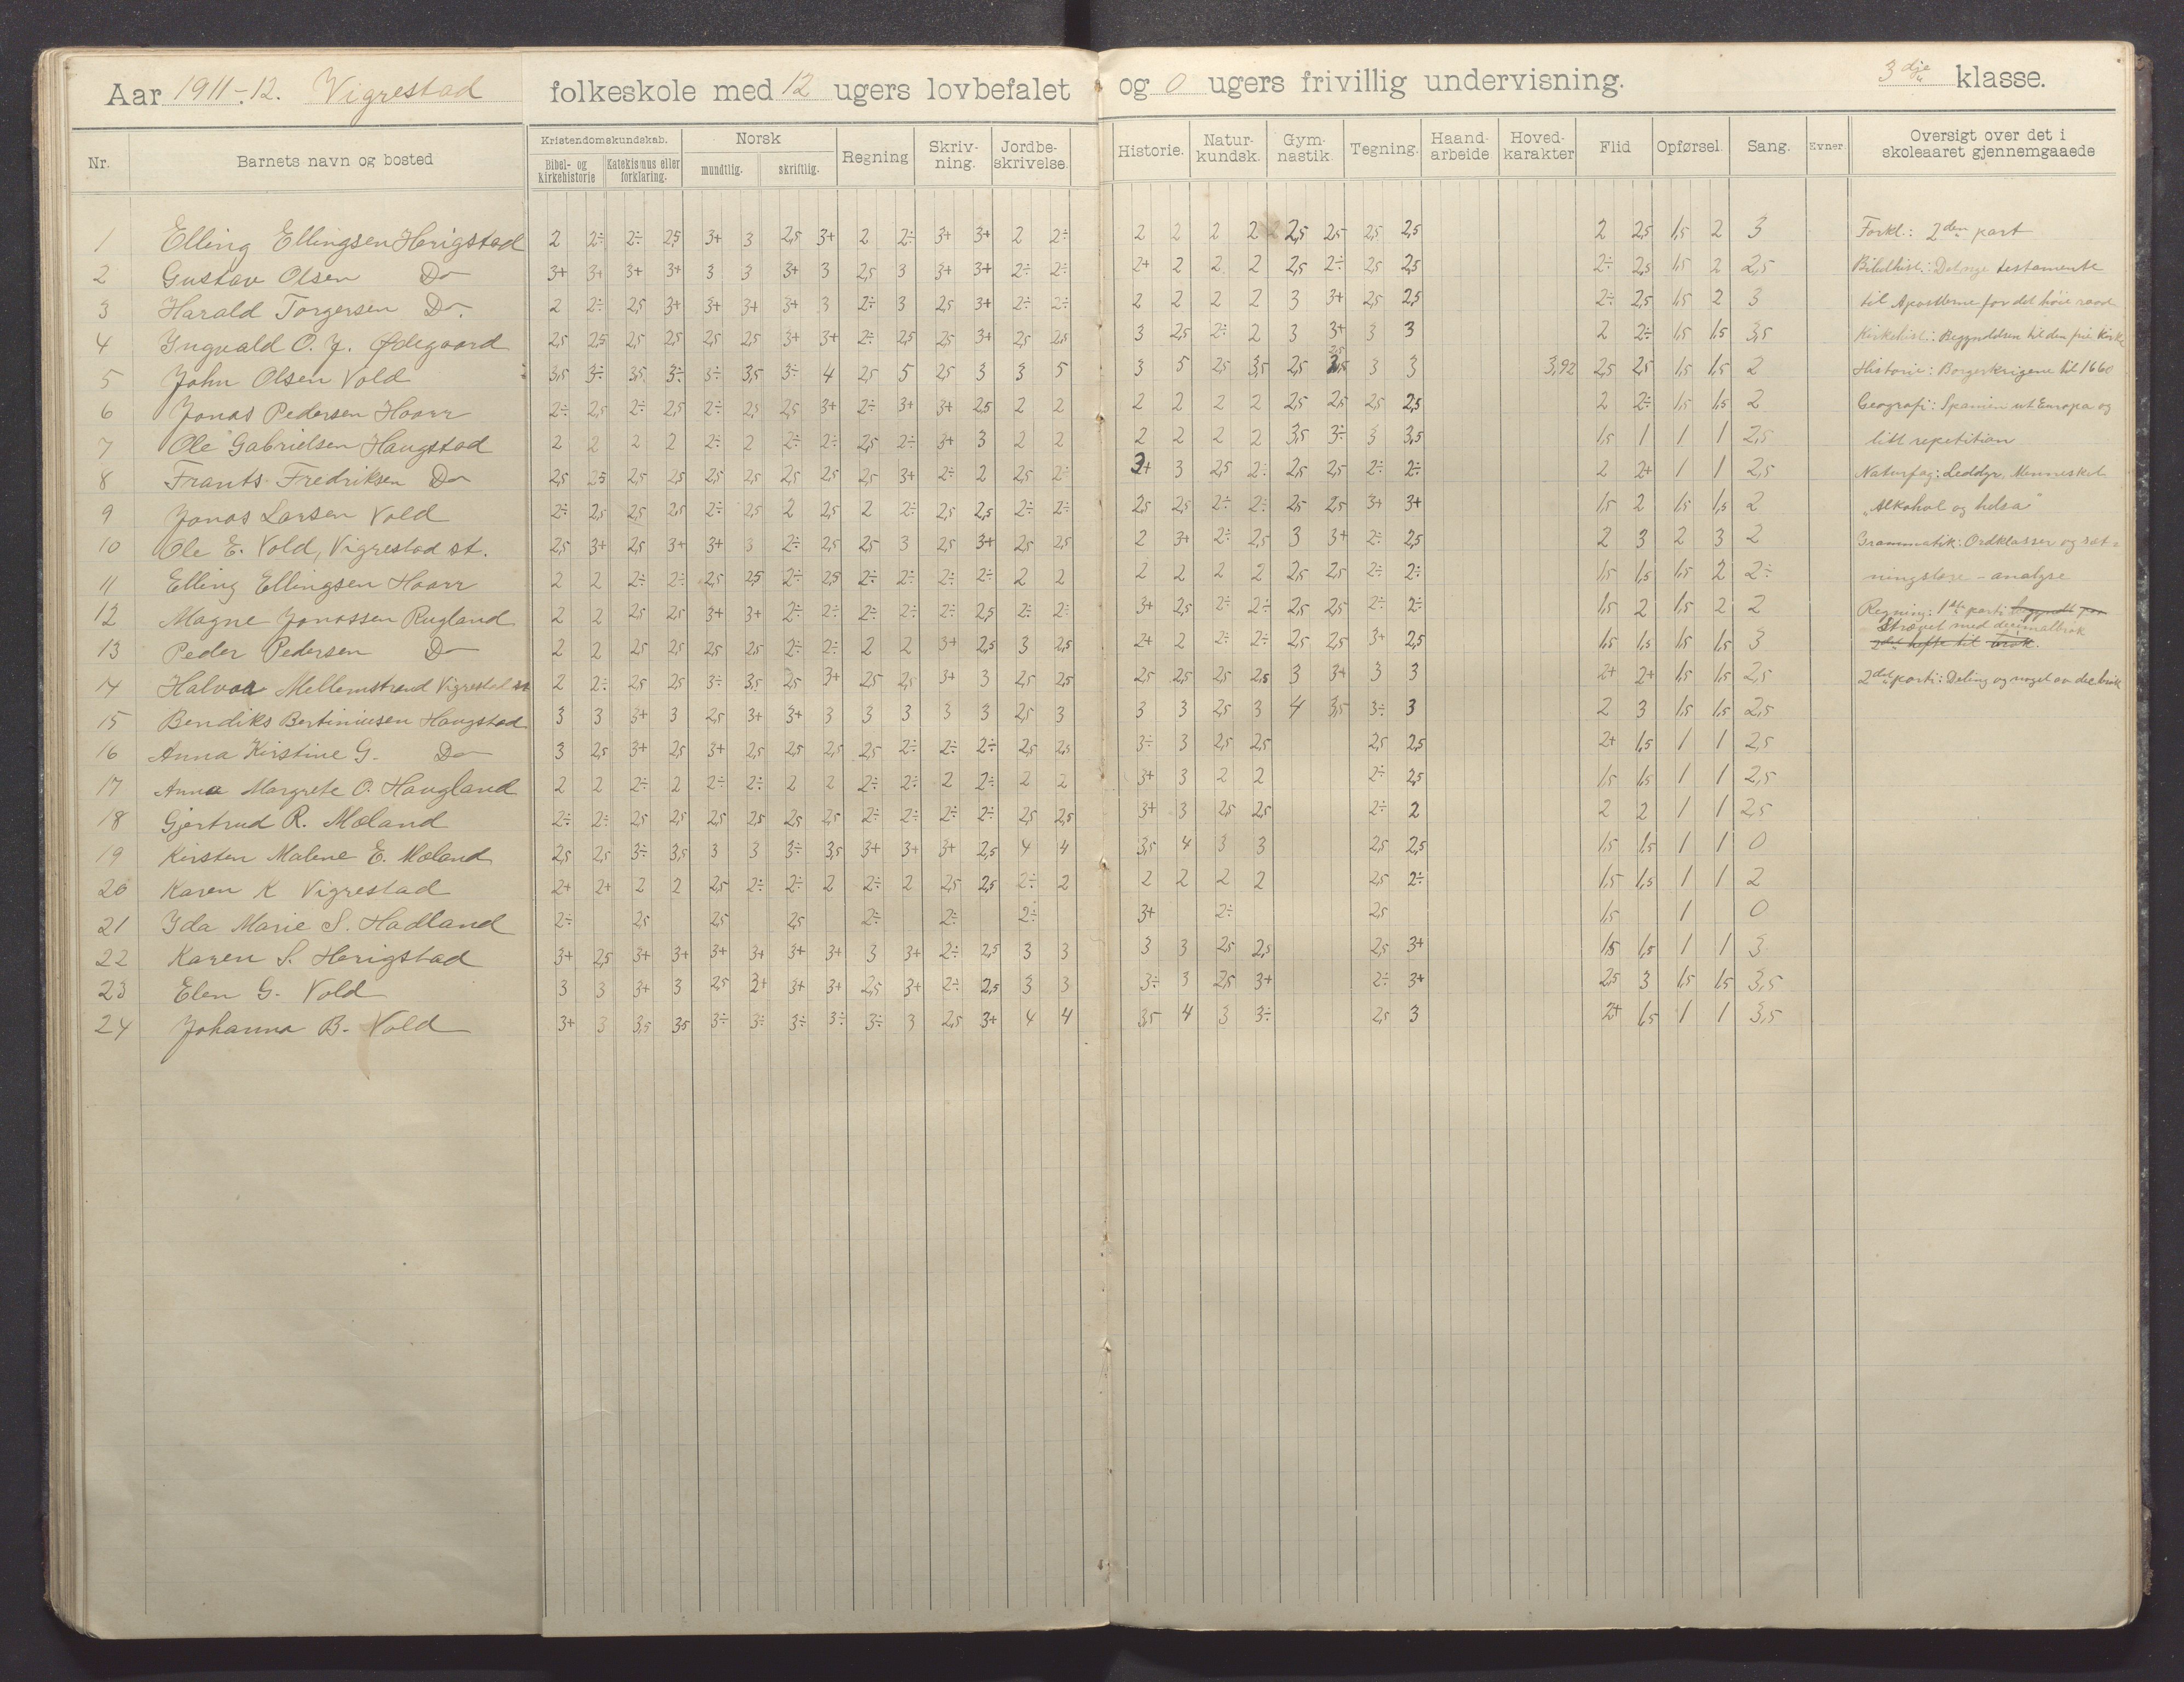 Aar 1911-12. Vigrestad folkeskole med 12 ugers lovbefalet og 0 ugers frivillig undervisning. 3dje klasse.
Nr. Barnets navn og bosted Kristendomskundskab. Bibel- og Kirkehistorie Katekismus eller forklaring. Norsk mundtlig. skriftlig. Regning Skriv-ning. Jordbe-skrivelse. Historie. Natur-kundsk. Gym-nastik. Tegning. Haand-arbeide Hoved-karakter Flid Opførsel. Sang. Evner. Oversigt over det i skoleaaret gjennemgaaede
1 Elling Ellingsen Herigstad 2 2÷ 2÷ 2,5 3+ 3 2,5 3+ 2 2÷ 3+ 3+ 2 2÷ 2 2 2 2 2,5 2,5 2,5 2,5 2 2,5 1,5 2 3 Forkl.: 2den part
2 Gustav Olsen Do 3+ 3+ 3+ 3+ 3 3 3+ 3 2,5 3 3+ 3+ 2÷ 2÷ 2+ 2 2 2 2,5 2÷ 2,5 2,5 2÷ 2,5 1,5 2 2,5 Bibelhist.: Det nye testamente
3 Harald Torgersen Do. 2 2÷ 2,5 3+ 3+ 3+ 3+ 3 2÷ 3 2,5 3+ 2÷ 2÷ 2 2 2 2 3 3+ 2,5 2,5 2÷ 2,5 1,5 2 3 til Apostlerne for det høie raad
4 Ingvald O. J. Ødegaard 2,5 2,5 2,5 2,5 2,5 2,5 3+ 3+ 2÷ 2,5 2,5 3+ 2,5 2,5 3 2,5 2÷ 2 3 3+ 3 3 2 2÷ 1,5 1,5 3,5 Kirkehist.: Begyndelsen til den frie kirke
5 John Olsen Vold 3,5 3÷ 3,5 3÷ 3÷ 3,5 3÷ 4 2,5 5 2,5 3 3 5 3 5 2,5 3,5 2,5 2,5 3 3 3,92 2,5 2,5 1,5 1,5 2 Historie: Borgerkrigene til 1660
6 Jonas Pedersen Haarr 2÷ 2,5 2÷ 2,5 2÷ 2,5 2,5 3+ 2÷ 3+ 3+ 2,5 2 2 2 2 2 2 2,5 2,5 2,5 2,5 2 2÷ 1,5 1,5 2 Geografi: Spanien ut Europa og
7 Ole Gabrielsen Haugstad 2 2 2 2 2÷ 2 2÷ 2÷ 2,5 2÷ 3+ 3 2 2 2 2 2 2 3,5 3÷ 3 3,5 1,5 1 1 1 2,5 litt repetition
8 Frants Fredriksen Do 2,5 2,5 2,5 2,5 2,5 2,5 2,5 2,5 2,5 3+ 2÷ 2 2,5 2÷ 3+ 3 2,5 2÷ 2,5 2,5 2÷ 2÷ 2 2+ 1 1 2,5 Naturfag: Leddyr, Mennesket
9 Jonas Larsen Vold 2÷ 2,5 2,5 2,5 2÷ 2,5 2 2,5 2 2÷ 2,5 2,5 2÷ 2÷ 2,5 2,5 2÷ 2÷ 2,5 2,5 3+ 3+ 1,5 2 1,5 1,5 2 "Alkohol og helsa"
10 Ole E. Vold, Vigrestad st. 2,5 3+ 2,5 3+ 3+ 3 2÷ 2,5 2,5 3 2,5 3+ 2,5 2,5 2 3+ 2÷ 2,5 3 3+ 2÷ 2,5 2 3 2 3 2 Grammatik: Ordklasser og sæt-
11 Elling Ellingsen Haarr 2 2 2÷ 2÷ 2,5 2,5 2÷ 2,5 2÷ 2÷ 2÷ 2÷ 2 2 2 2 2 2 2,5 2,5 2÷ 2÷ 1,5 1,5 1,5 2 2÷ ningslære - analyse
12 Magne Jonassen Rugland 2 2 2,5 2,5 3+ 3+ 2÷ 2÷ 2÷ 2÷ 2÷ 2,5 2÷ 2÷ 3+ 2,5 2÷ 2÷ 2,5 2,5 2÷ 2÷ 1,5 2 1,5 2 2 Regning: 1ste parti begyndt paa
Strævet med decimalbrøk
13 Peder Pedersen Do 2 2 2,5 2,5 2,5 2,5 2÷ 2÷ 2 2 3+ 2,5 3 2,5 2+ 2 2÷ 2÷ 2,5 2,5 3+ 2,5 1,5 1,5 1,5 1,5 3 2det hefte til brøk.
14 Halvor Mellemstrand Vigrestad st 2 2÷ 2,5 2,5 3÷ 3,5 2,5 3+ 2,5 2,5 3+ 3 2,5 2,5 2,5 2,5 2,5 2,5 3 3+ 3 3 2+ 2+ 1,5 1,5 2,5 2det parti: Deling og noget av dec brøk
15 Bendiks Bertiniusen Haugstad 3 3 3+ 3 2,5 3+ 3+ 3 3 3 3 3 2,5 3 3 3 2,5 3 4 3,5 3÷ 3 2 3 1,5 1,5 2,5
16 Anna Kirstine G. Do 3 2,5 3+ 2,5 3+ 2,5 2,5 2,5 2,5 2÷ 2÷ 2÷ 2,5 2,5 3÷ 3 2,5 2,5 2,5 2,5 2+ 1,5 1 1 2,5
17 Anna Margrete O. Haugland 2 2 2÷ 2 2÷ 2÷ 2 2 2÷ 2÷ 2 2÷ 2 2 3+ 3 2 2 2÷ 2,5 1,5 1,5 1 1 2,5
18 Gjertrud R. Mæland 2÷ 2÷ 2,5 2,5 2,5 2,5 2,5 2,5 2÷ 2÷ 2÷ 2÷ 2,5 2,5 3+ 3 2,5 2,5 2÷ 2 2 2 1 1 2,5
19 Kirsten Malene E. Mæland 2,5 2,5 3÷ 3,5 3 3 3÷ 3,5 3+ 3+ 3+ 2,5 4 4 3,5 4 3 3 2,5 2,5 1,5 1,5 1 1 0
20 Karen K Vigrestad 2+ 2+ 2 2 2,5 2÷ 2÷ 2 2÷ 2 2,5 2,5 2÷ 2 2 2 2 2 2,5 2÷ 1,5 1,5 1 1 2
21 Ida Marie S. Hadland 2÷ 2,5 2,5 2,5 2÷ 2÷ 2÷ 3+ 2÷ 2,5 1,5 1 0
22 Karen S. Herigstad 3+ 2,5 3+ 3+ 3+ 3+ 3+ 3+ 3 3+ 2÷ 2,5 3 3 3 3 2,5 2,5 2,5 3+ 1,5 1,5 1 1 3
23 Elen G. Vold 3 3 3+ 3 2,5 3+ 3+ 3+ 2,5 3+ 2÷ 2,5 3 3 3÷ 3 2,5 3+ 2÷ 3+ 2,5 3 1,5 1,5 3,5
24 Johanna B. Vold 3+ 3 3,5 3,5 3÷ 3÷ 3÷ 3÷ 3÷ 3 2,5 3+ 4 4 3,5 4 3 3÷ 2,5 3 2+ 1,5 1 1 3,5